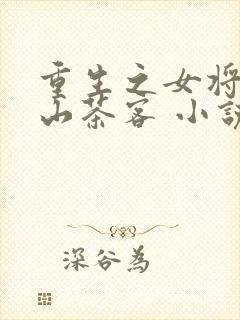 重生之女将
山茶客 小說
深谷為